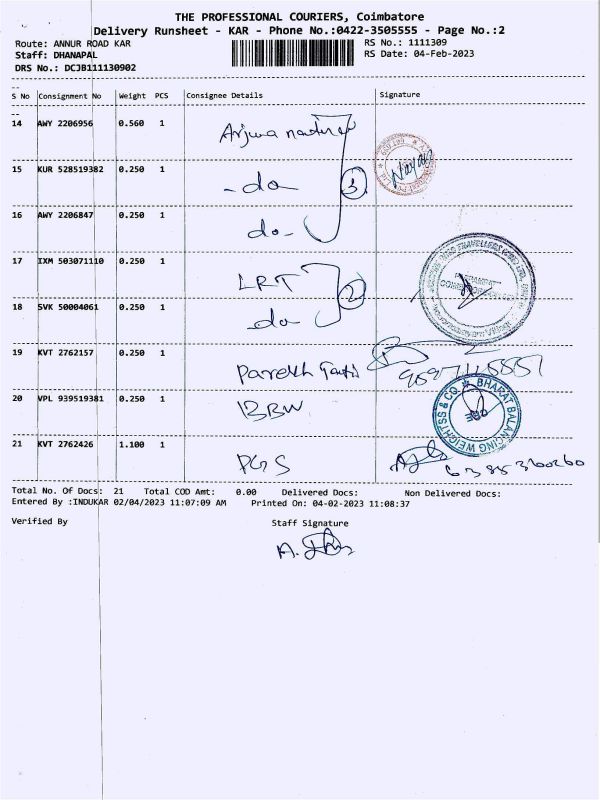 THE PROFESSIONAL COURIERS, Coimbatore
Delivery Runsheet - KAR - Phone No.:0422-3505555 - Page No.:2
Route: ANNUR ROAD KAR RS No.: 1111309
Staff: DHANAPAL RS Date: 04-Feb-2023
DRS No.: DCJB111130902
S No Consignment No Weight PCS Consignee Details Signature
14 AWY 2206956 0.560 1 Arjuna
15 KUR 528519382 0.250 1 -do 3
16 AWY 2206847 0.250 1 do-
17 IXM 503071110 0.250 1 LRT
18 SVK 50004061 0.250 1 do 2
19 KVT 2762157 0.250 1 Parekh
20 VPL 939519381 0.250 1 BBW BHARAT BALANCING WEIGHTSS & CO. CBE
21 KVT 2762426 1.100 1 PGS
Total No. Of Docs: 21 Total COD Amt: 0.00 Delivered Docs: Non Delivered Docs:
Entered By :INDUKAR 02/04/2023 11:07:09 AM Printed On: 04-02-2023 11:08:37
Verified By Staff Signature